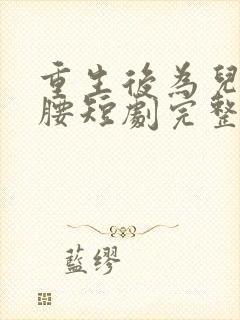 重生後為兒
腰短劇完整
藍缪